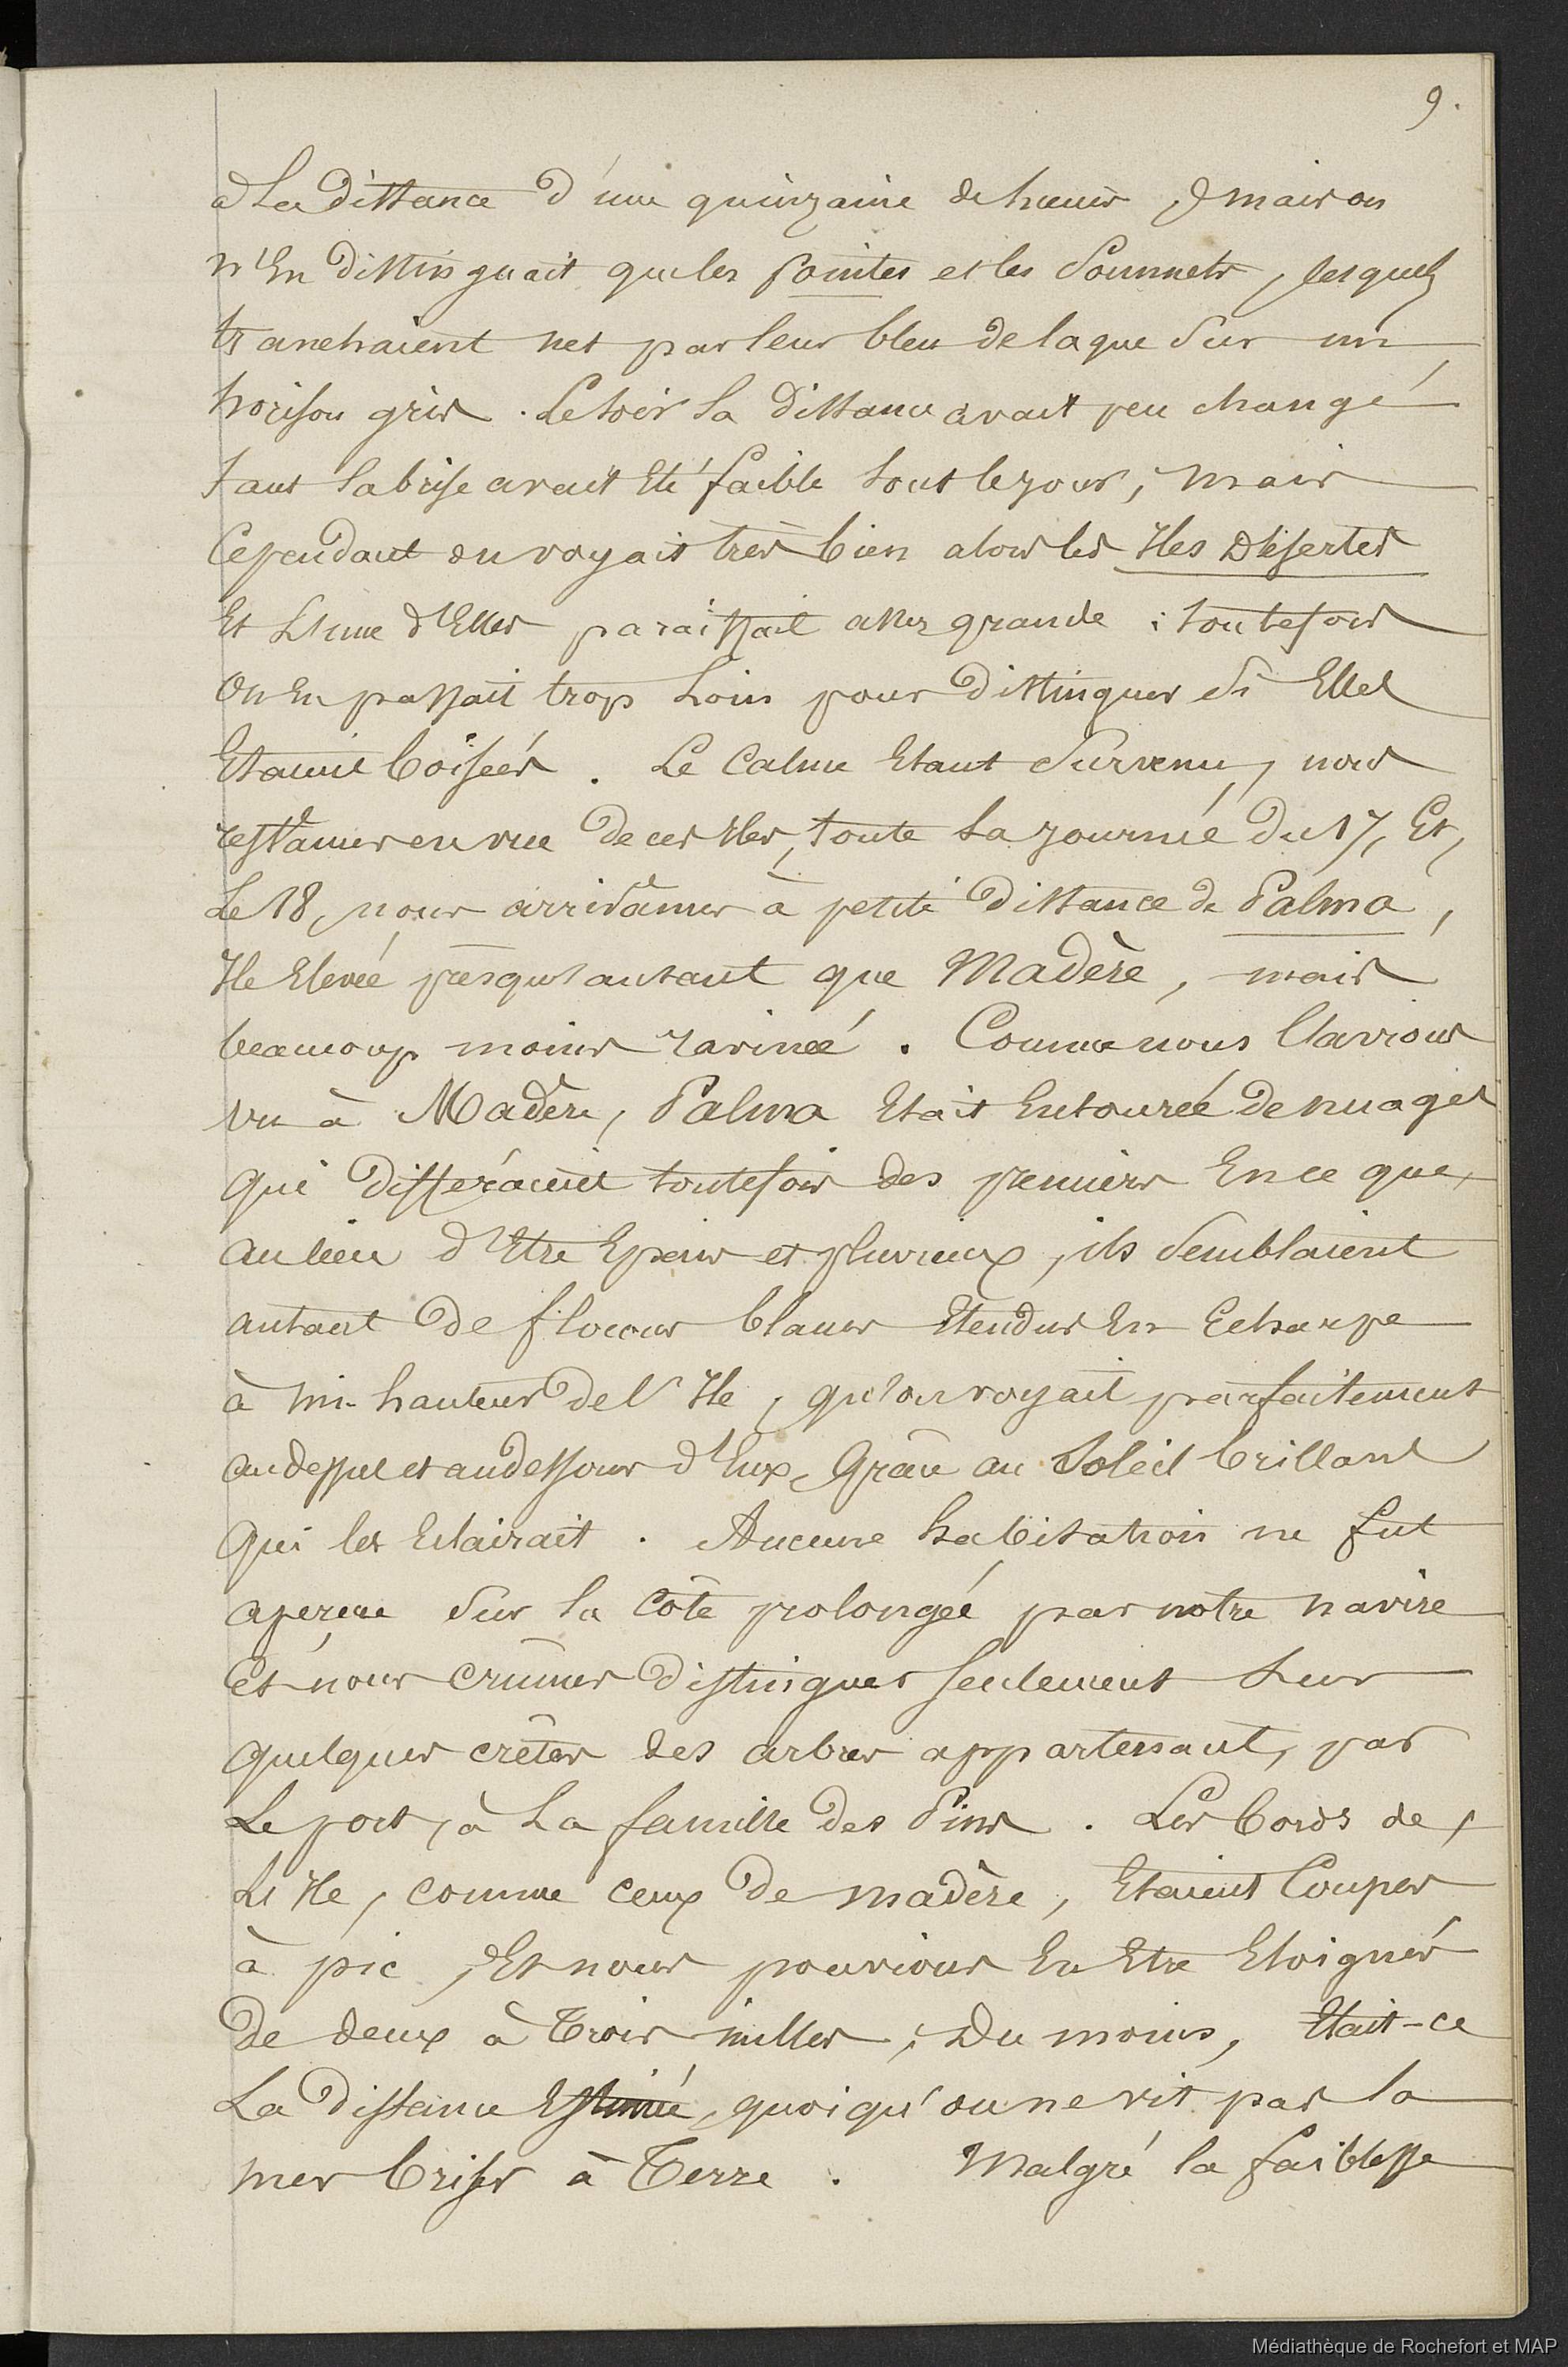 9.
à la distance d'une quinzaine de lieues, mais on
n'En distinguait que les pointes et les Sommets, lesquels
tranchaient net par leur bleu de laque Sur un
horison gris. Le soir la distance avait peu changé
tant la brise avait Eté faible tout le jour, mais
Cependant on voyait très bien alors les Iles Désertes
Et L'une d'Elles paraissait assez grande ; toutefois
On En passait trop Loin pour distinguer Si Elles
Etaient boisées. Le Calme Etant Survenu, nous
restâmes en vue de ces Iles, toute la journée du 17, Et,
Le 18, nous arrivâmes à petite distance de Palma,
Ile Elevée presqu'autant que Madère, mais
beaucoup moins ravinée. Comme nous l'avions
vu à Madère, Palma Etait Entourée de nuages
qui différaient toutefois des premiers En ce que,
au lieu d'Etre Epais et pluvieux, ils Semblaient
autant de flocons blancs Etendus En Echarpe
à mi-hauteur de l'Ile, qu'on voyait parfaitement
au dessus et au dessous d'Eux, Grâce au Soleil brillant
qui les Eclairait. Aucune habitation ne fut
aperçue Sur la Côte prolongée par notre navire
Et nous crûmes distinguer seulement Sur
quelques crêtes des arbres appartenant, par
Le port, à La famille des Pins. Les bords de
L'Ile, comme ceux de madère, Etaient Coupés
à pic, Et nous pouvions En Etre Eloignés
de deux à trois milles, Du moins, Etait-ce
La distance Estimée, quoiqu'on ne vit pas la
mer briser à Terre. Malgré la faiblesse
Médiathèque de Rochefort et MAP